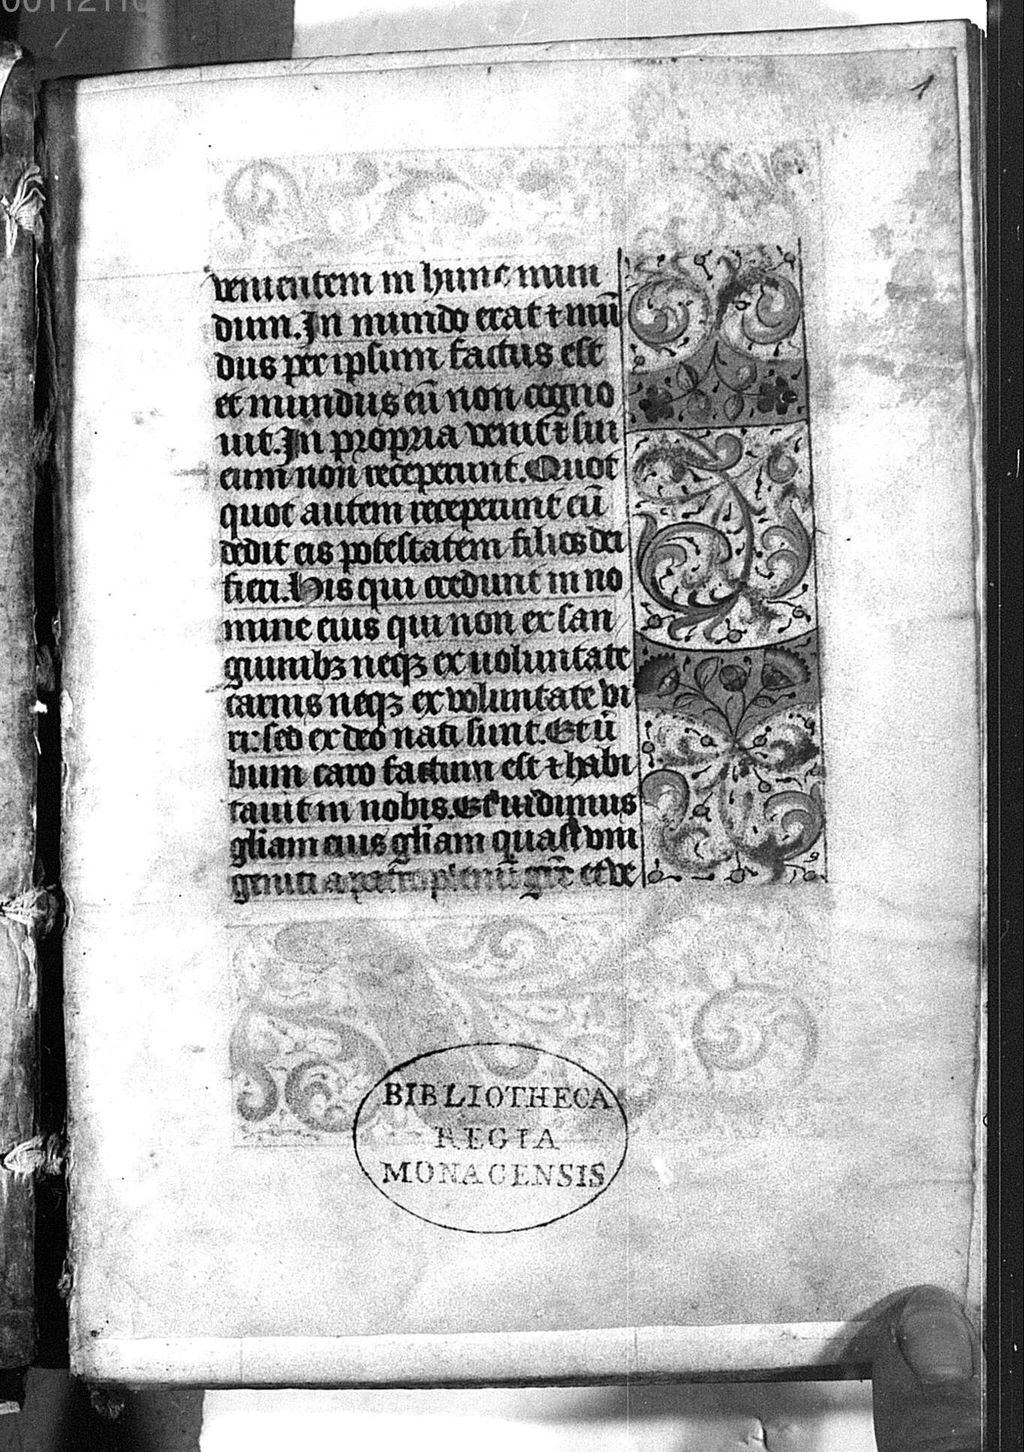 00112110
1
venientem in hunc mun
dum. In mundo erat ⁊ mū
dus per ipsum factus est
et mundus eū non cogno
uit. In propria venit ⁊ sui
eum non receperunt. Quot
quot autem receperunt eū
dedit eis potestatem filios dei
fieri. His qui credunt in no
mine eius qui non ex san
guinibꝫ neqꝫ ex uoluntate
carnis neqꝫ ex voluntate vi
ri: sed ex deo nati sunt. Et ū
bum caro factum est ⁊ habi
tauit in nobis. Et uidimus
gl̄iam eius gl̄iam quasi vni
geniti a patre plenū gr̄e et ve
BIBLIOTHECA
REGIA
MONACENSIS